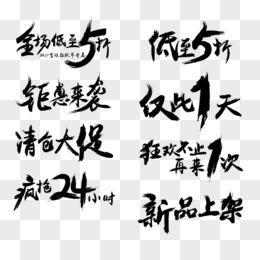 全场低至5折
低至5折
钜惠来袭
仅此1天
清仓大促
狂欢不止
再来1次
疯抢24小时
新品上架